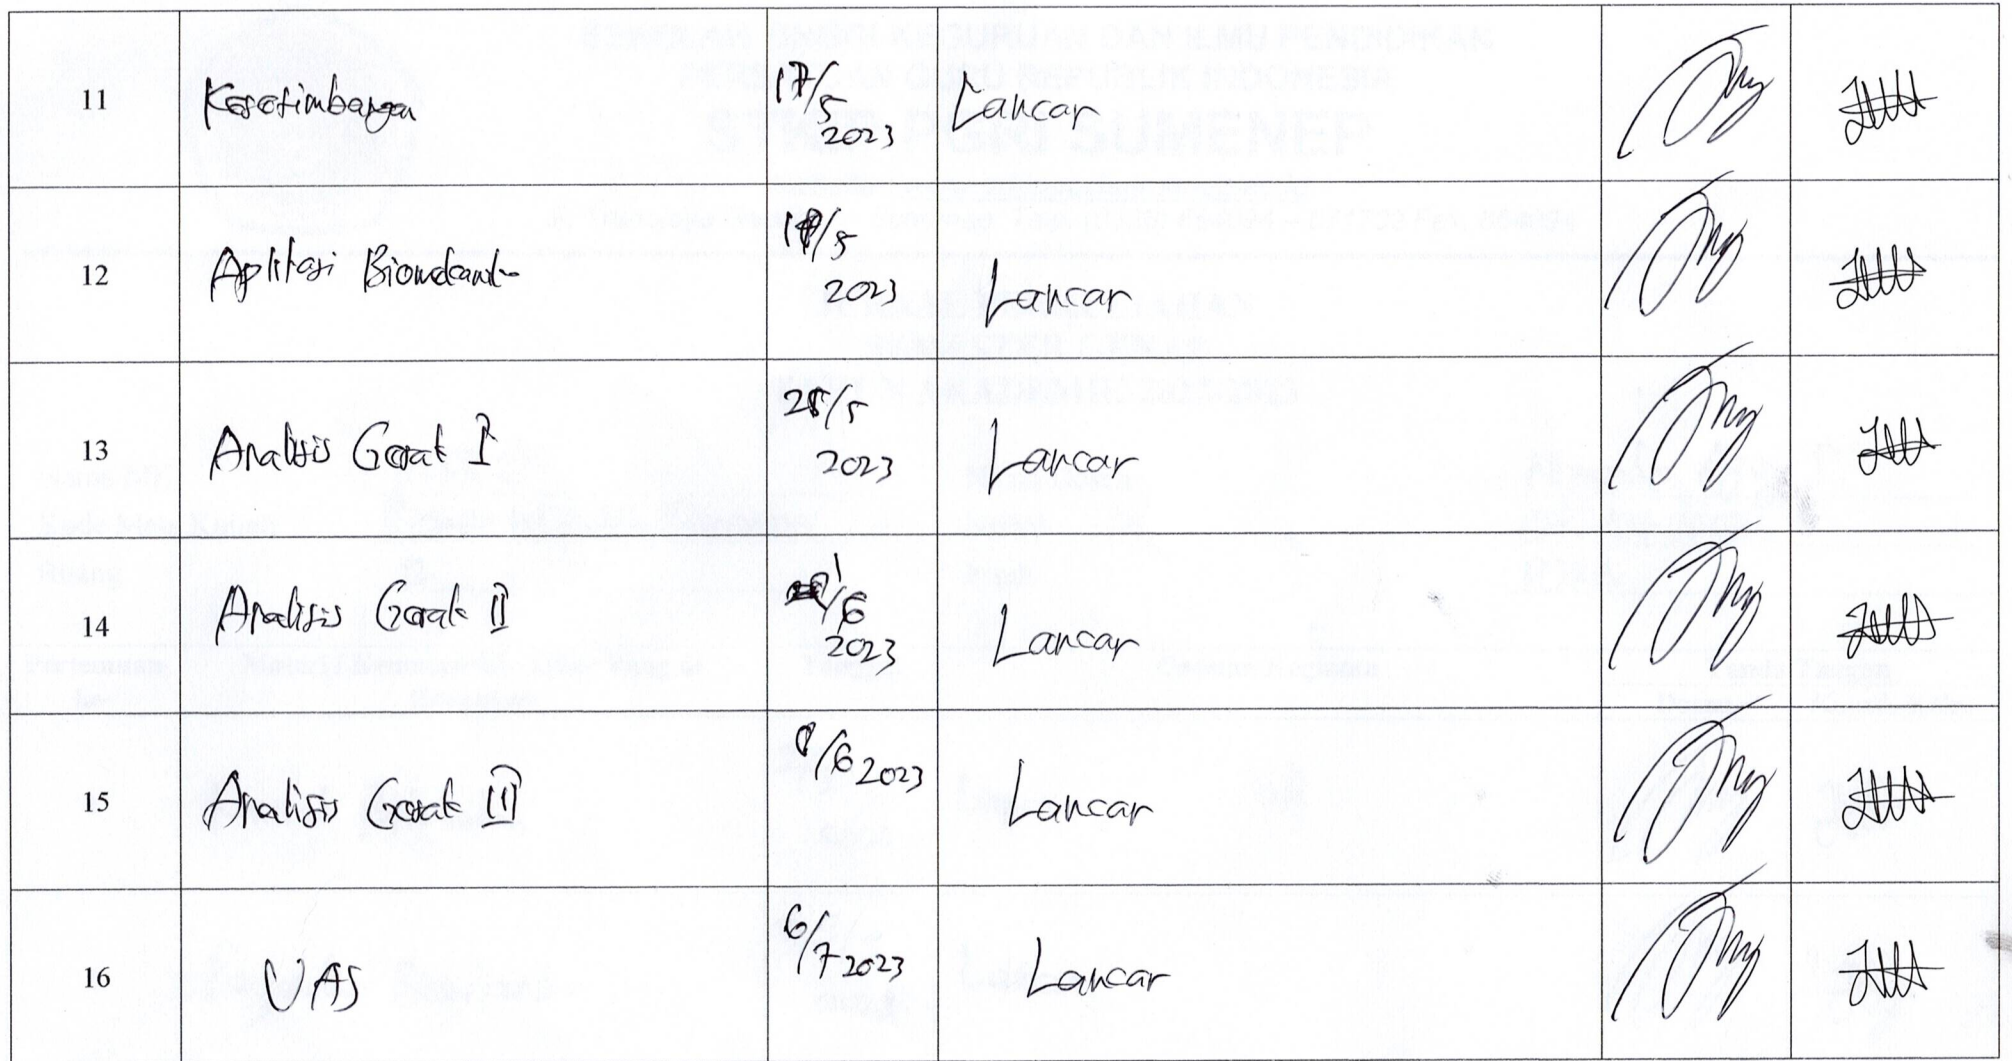 11 Keseimbangan 17/5 2023 Lancar
12 Aplikasi Biomekanik 2023 Lancar
13 Analisis Gerak I 25/5 2023 Lancar
14 Analisis Gerak II 1/6 2023 Lancar
15 Analisis Gerak III 8/6 2023 Lancar
16 UAS 6/7 2023 Lancar